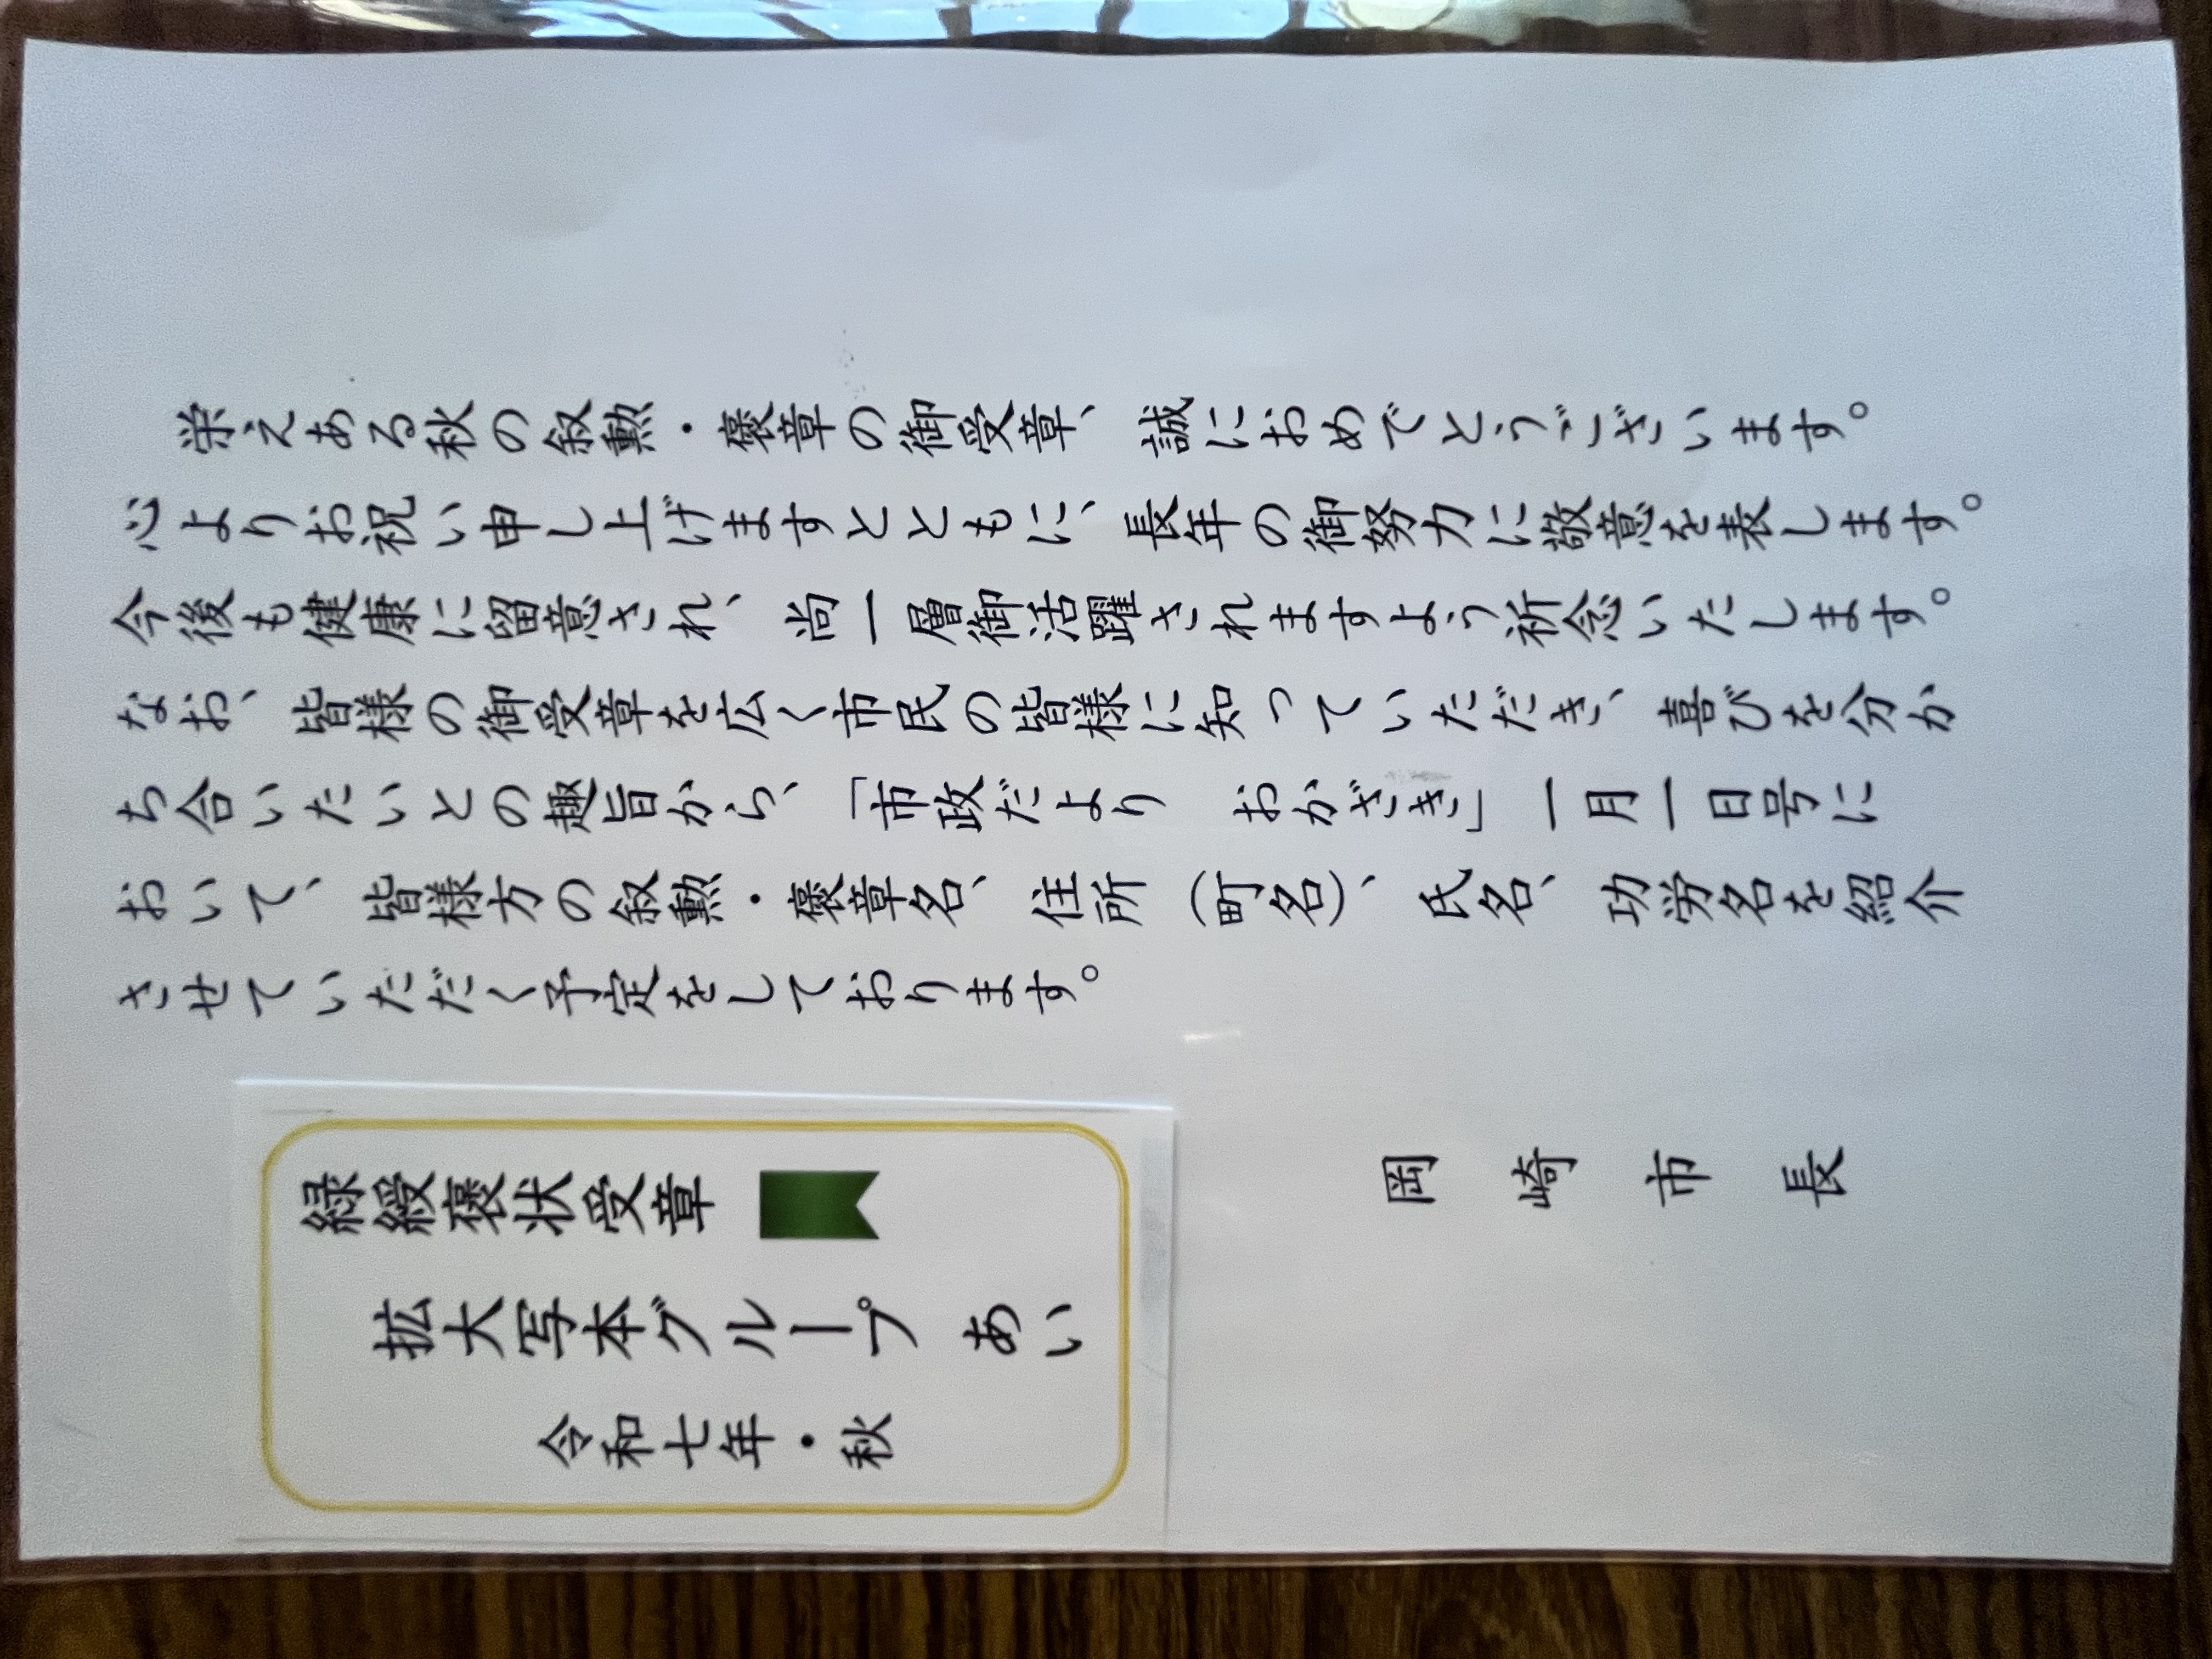 栄えある秋の叙勲・褒章の御受章、誠におめでとうございます。
心よりお祝い申し上げますとともに、長年の御努力に敬意を表します。
今後も健康に留意され、尚一層御活躍されますよう祈念いたします。
なお、皆様の御受章を広く市民の皆様に知っていただき、喜びを分か
ち合いたいとの趣旨から、「市政だより　おかざき」一月一日号に
おいて、皆様方の叙勲・褒章名、住所（町名）、氏名、功労名を紹介
させていただく予定をしております。
岡崎市長
緑綬褒状受章
拡大写本グループ あい
令和七年・秋